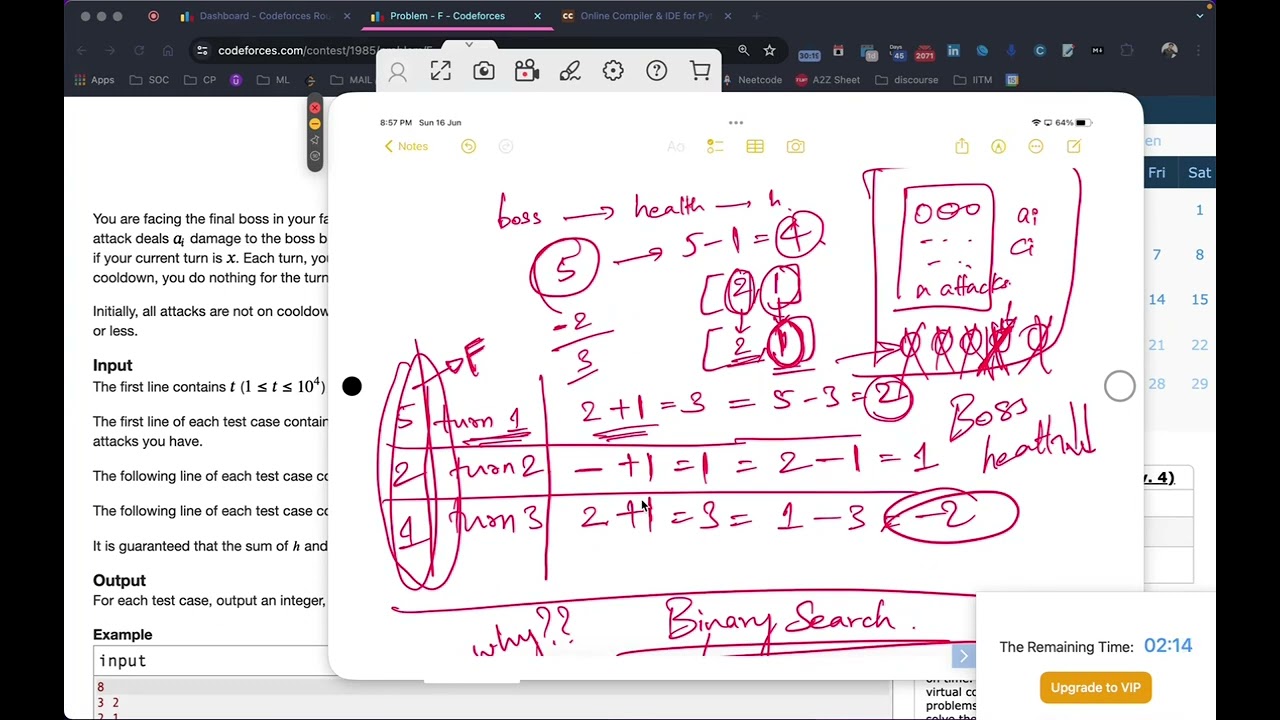 Dashboard - Codeforces Rou
Problem - F - Codeforces
Online Compiler & IDE for Pyt
codeforces.com/contest/1985/problem/F
30:15
Days
45
2071
Apps
SOC
CP
ML
MAIL
Neetcode
A2Z Sheet
discourse
IITM
8:57 PM Sun 16 Jun
64%
Notes
Aa
boss → health → h.
5 → 5-1 = 4
[2, 1]
[2, 1]
-2
3
ai
ci
n attacks
F
5 turn 1 2+1 = 3 = 5-3 = 2
2 turn 2 - +1 = 1 = 2-1 = 1
1 turn 3 2+1 = 3 = 1-3 = -2
Boss
health
why??
Binary Search.
You are facing the final boss in your fa
attack deals ai damage to the boss b
if your current turn is x. Each turn, yo
cooldown, you do nothing for the turn
Initially, all attacks are not on cooldow
or less.
Input
The first line contains t (1 ≤ t ≤ 10⁴)
The first line of each test case contain
attacks you have.
The following line of each test case co
The following line of each test case co
It is guaranteed that the sum of h and
Output
For each test case, output an integer,
Example
input
8
3 2
2 1
en
Fri Sat
1
7 8
14 15
21 22
28 29
v. 4)
The Remaining Time: 02:14
Upgrade to VIP
on time.
virtual co
problems
solve the